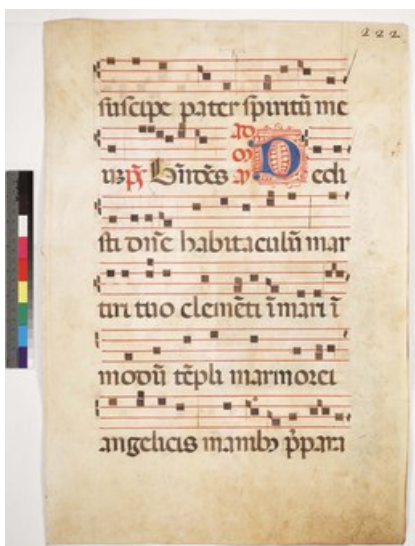 222
suscipe pater spiritū me
uʒ p̄s Bn̄dc̄s D edi
sti dn̄e habitaculū mar
tiri tuo clemēti ī mari ī
modū tēpli marmorei
angelicis manibꝫ p̄para